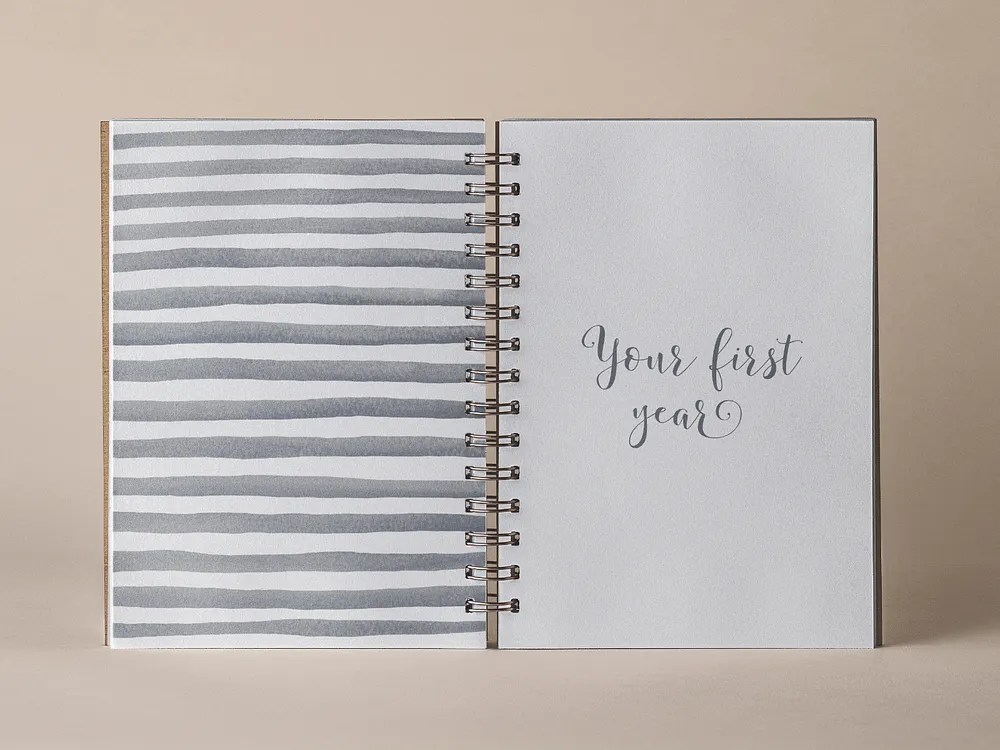 Your first
year